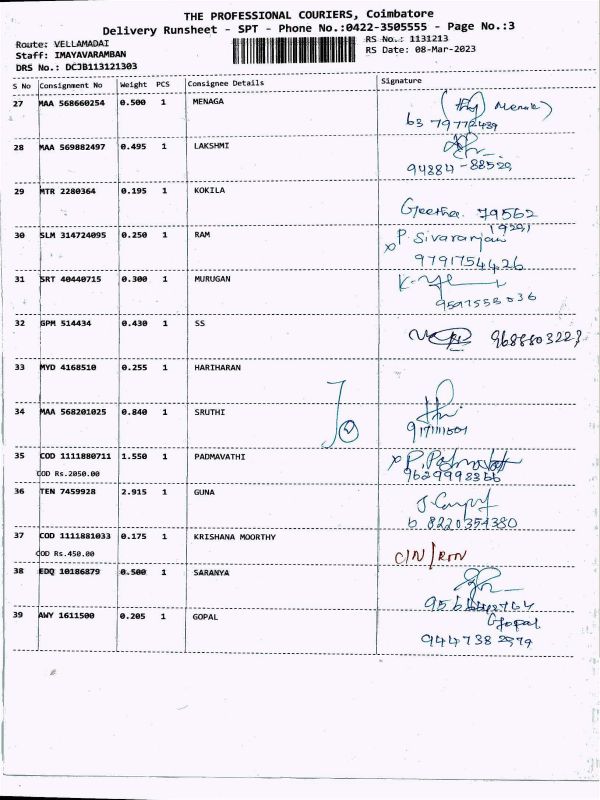 THE PROFESSIONAL COURIERS, Coimbatore
Delivery Runsheet - SPT - Phone No.:0422-3505555 - Page No.:3
Route: VELLAMADAI
Staff: IMAYAVARAMBAN
DRS No.: DCJB113121303
RS No.: 1131213
RS Date: 08-Mar-2023
S No Consignment No Weight PCS Consignee Details Signature
27 MAA 568660254 0.500 1 MENAGA
28 MAA 569882497 0.495 1 LAKSHMI
94884-88529
29 MTR 2280364 0.195 1 KOKILA
Geetha. 79562
30 SLM 314724095 0.250 1 RAM
P. Sivaranjani
9791754426
31 SRT 40440715 0.300 1 MURUGAN
9597558036
32 GPM 514434 0.430 1 SS
9688803223
33 MYD 4168510 0.255 1 HARIHARAN
34 MAA 568201025 0.840 1 SRUTHI
35 COD 1111880711 1.550 1 PADMAVATHI
COD Rs.2050.00
9629998366
36 TEN 7459928 2.915 1 GUNA
8220354380
37 COD 1111881033 0.175 1 KRISHANA MOORTHY
COD Rs.450.00
38 EDQ 10186879 0.500 1 SARANYA
39 AWY 1611500 0.205 1 GOPAL
Gopal
9447382979